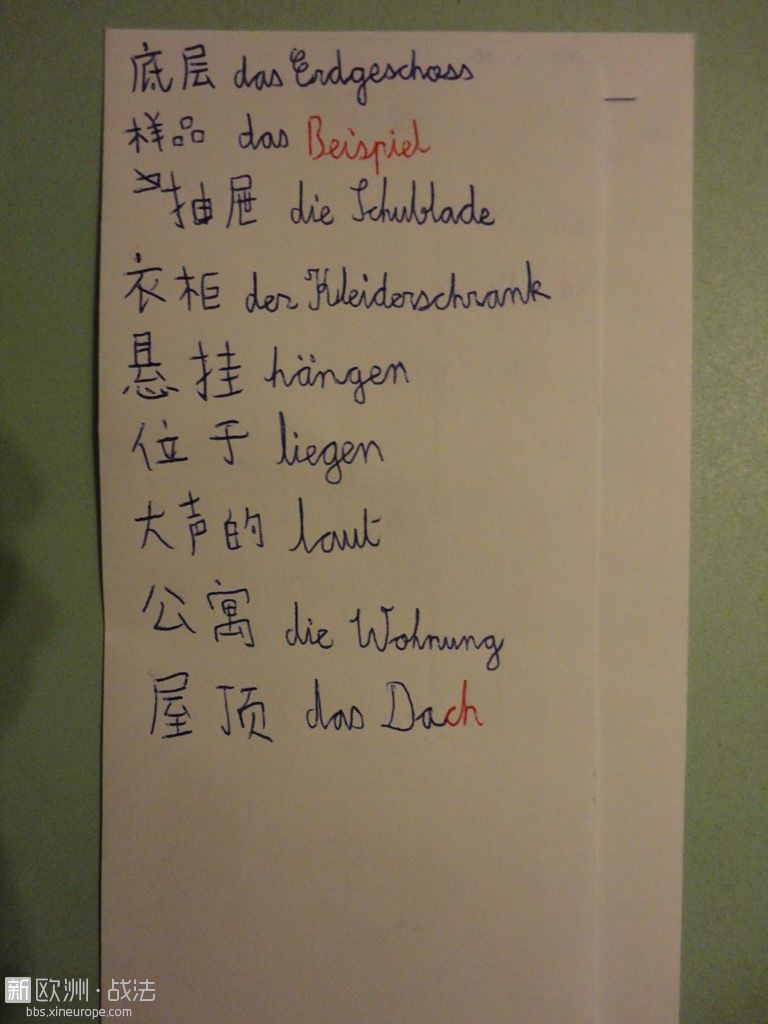 底层 das Erdgeschoss
样品 das Beispiel
抽屉 die Schublade
衣柜 der Kleiderschrank
悬挂 hängen
位于 liegen
大声的 laut
公寓 die Wohnung
屋顶 das Dach
新欧洲·战法
bbs.xineurope.com